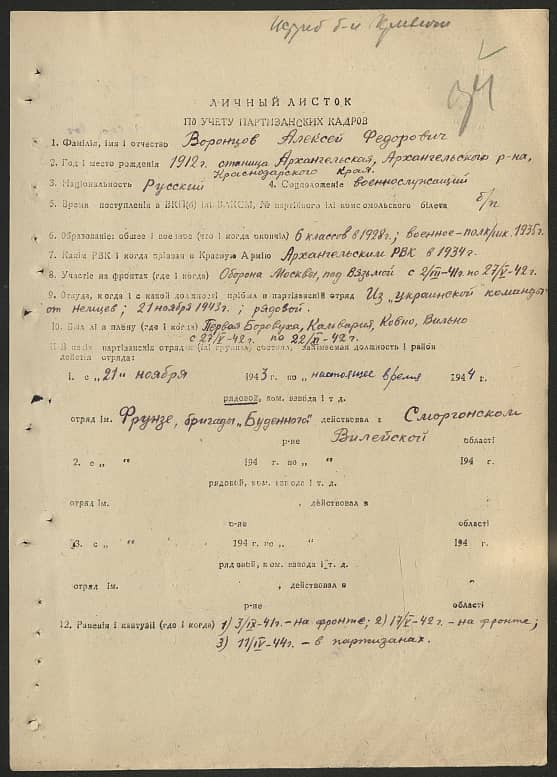 ЛИЧНЫЙ ЛИСТОК
ПО УЧЕТУ ПАРТИЗАНСКИХ КАДРОВ
1. Фамілія, імя і отчество Воронцов Алексей Федорович
2. Год і место рождения 1912 г. станица Архангельская, Архангельского р-на,
Краснодарского края.
3. Національность Русский 4. Соцположение военнослужащий
5. Время поступления в ВКП(б) ілі ВЛКСМ, № партійного ілі комсомольского білета б/п
6. Образованіе: общее і военное (что і когда окончіл) 6 классов в 1928 г.; военное - 1935 г.
7. Какім РВК і когда прізван в Красную Армію Архангельским РВК в 1934 г.
8. Участіе на фронтах (где і когда) Оборона Москвы, под Вязьмой с 2/III-41 г. по 27/V-42 г.
9. Откуда, когда і с какой должності прібыл в партізанскій отряд Из „украинской команды"
от немцев; 21 ноября 1943 г.; рядовой.
10. Был лі в плену (где і когда) Первая Боровуха, Кальвария, Ковно, Вильно
с 27/V-42 г. по 22/XI-42 г.
действія отряда:
1. с „21" ноября 1943 г. по „настоящее время 1944 г.
рядовой, ком. взвода і т. д.
отряд ім. Фрунзе, бригады „Буденного" действовал в Сморгонском
р-не Вилейской області
2. с „ " 194 г. по „ " 194 г.
рядовой, ком. взвода і т. д.
отряд ім. , действовал в
р-не області
3. с „ " 194 г. по „ " 194 г.
рядовой, ком. взвода і т. д.
отряд ім. , действовал в
р-не області
12. Раненія і контузіі (где і когда) 1) 3/IX-41 г. - на фронте; 2) 17/V-42 г. - на фронте;
3) 11/IV-44 г. - в партизанах.